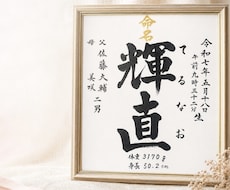 命名
令和七年五月十八日生
午前九時三十二分
てるなお
輝直
父 佐藤大輔
母 美咲
二男
体重 3170g
身長 50.2cm